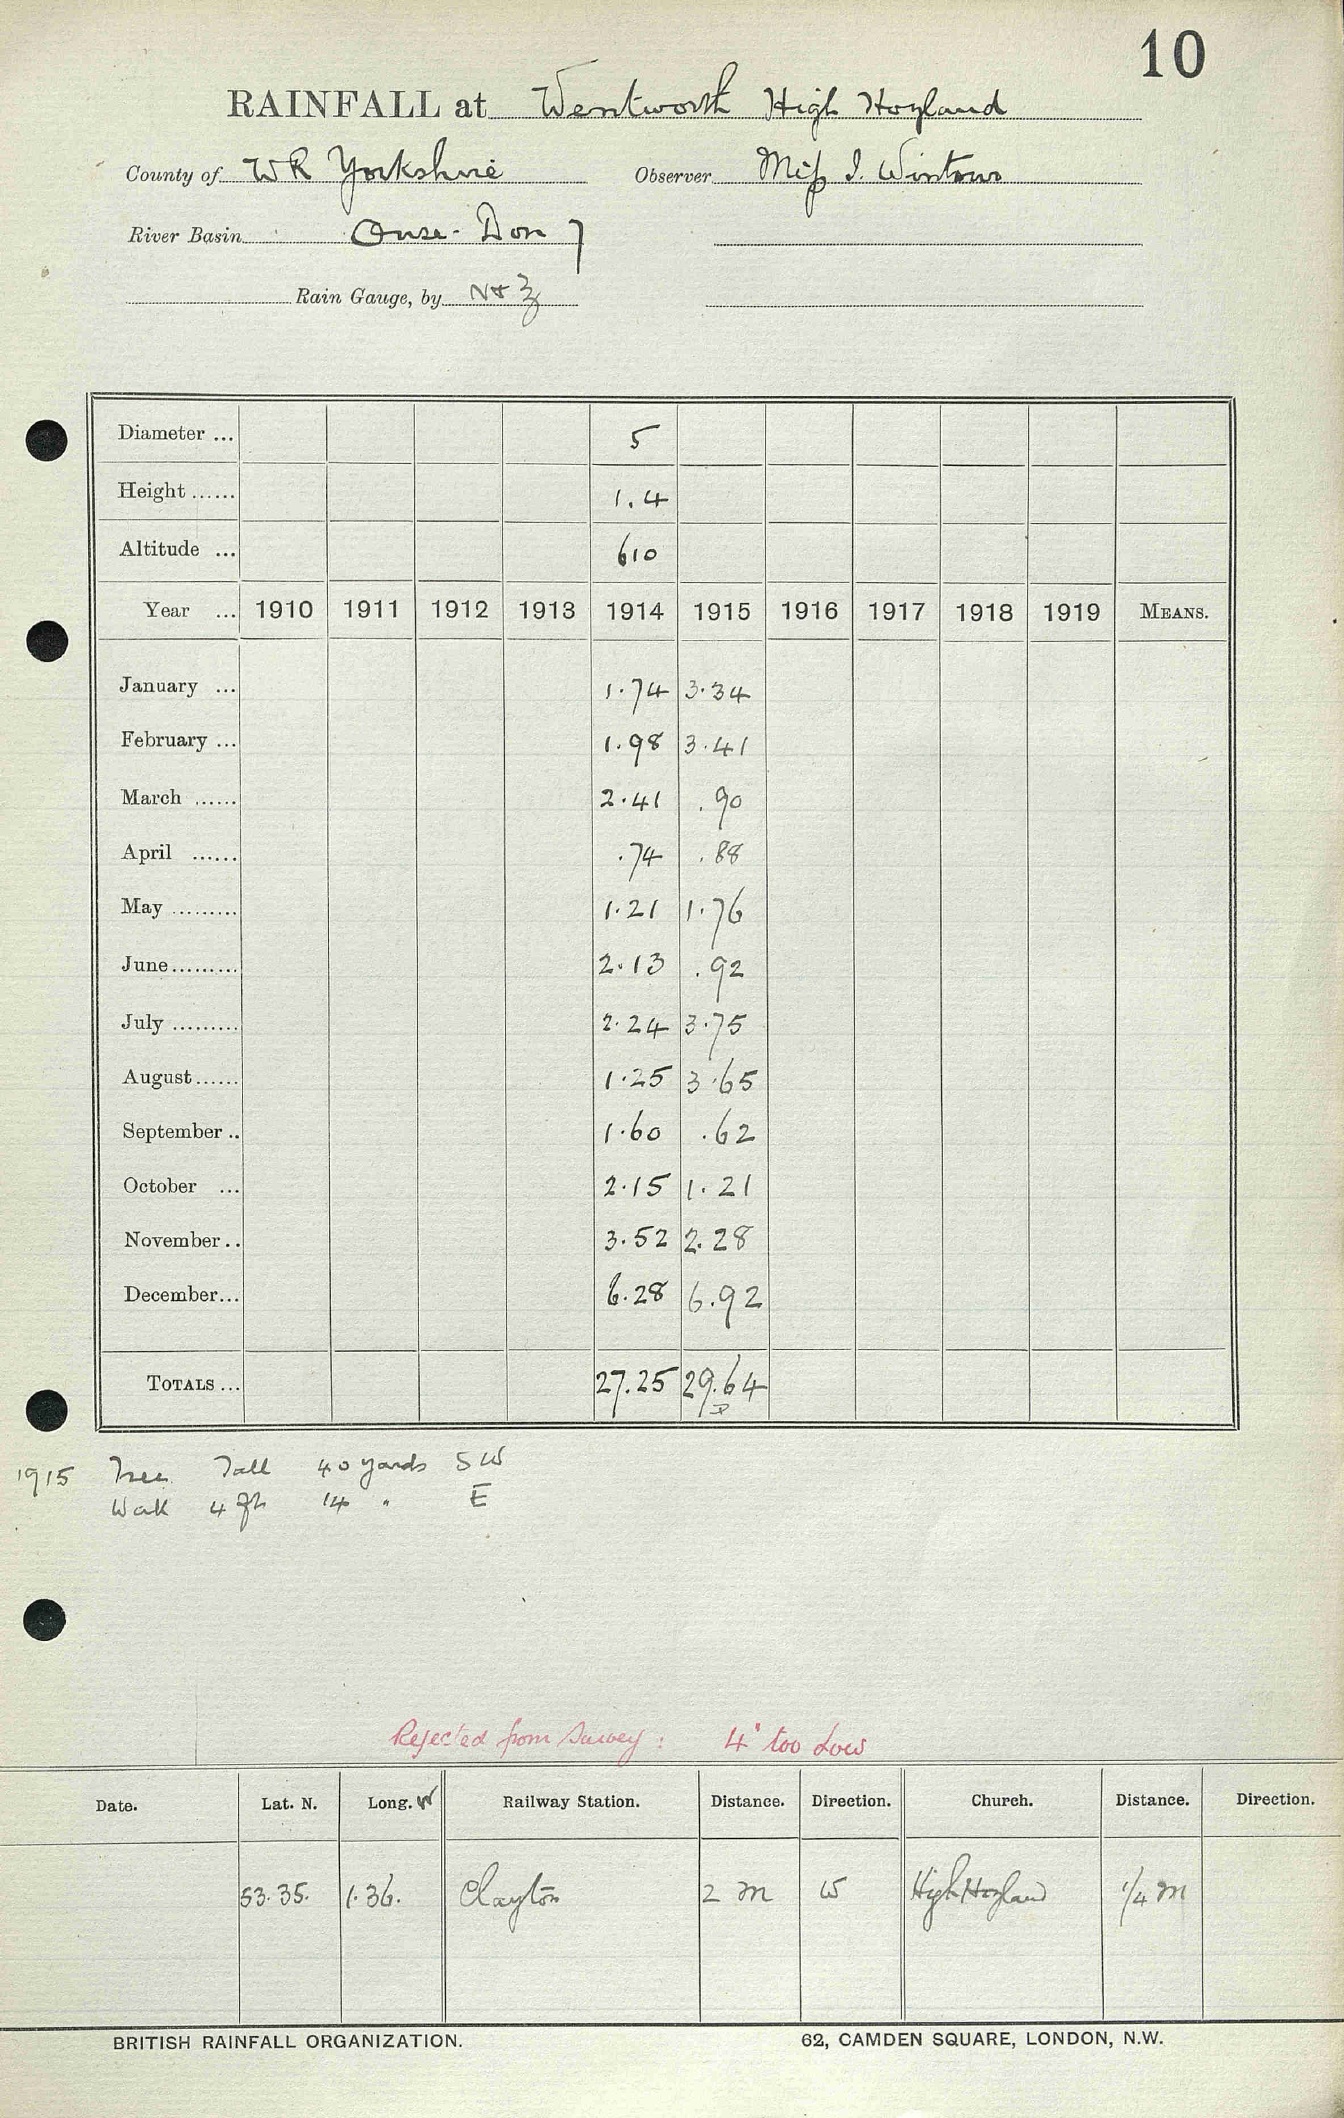 10
RAINFALL at Wentworth High Hoyland
County of WR Yorkshire Observer Miss I. Winters
River Basin Ouse - Don 7
Rain Gauge, by N & Z
Diameter ... 5
Height ...... 1.4
Altitude ... 610
Year ... 1910 1911 1912 1913 1914 1915 1916 1917 1918 1919 MEANS.
January ... 1.74 3.34
February ... 1.98 3.41
March ...... 2.41 .90
April ...... .74 .88
May ......... 1.21 1.76
June ......... 2.13 .92
July ......... 2.24 3.75
August ...... 1.25 3.65
September .. 1.60 .62
October ... 2.15 1.21
November .. 3.52 2.28
December ... 6.28 6.92
TOTALS ... 27.25 29.64
1915 Tree Tall 40 yards SW
Wall 4 ft 14 " E
Rejected from Survey : 4" too Low
Date. Lat. N. Long. W Railway Station. Distance. Direction. Church. Distance. Direction.
53.35. 1.36. Clayton 2 m W High Hoyland 1/4 m
BRITISH RAINFALL ORGANIZATION. 62, CAMDEN SQUARE, LONDON, N.W.